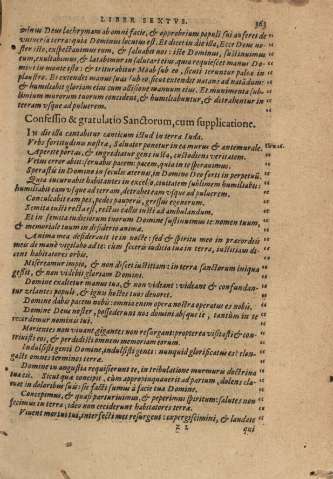 LIBER SEXTVS. 363
minus Deus lachrymam ab omni facie, & opprobrium populi sui auferet de
vniuersa terra: quia Dominus locutus est. Et dicet in die illa, Ecce Deus no-
ster iste, expectauimus eum, & saluabit nos: iste Dominus, sustinuimus
eum, exultabimus, & lætabimur in salutari eius. quia requiescet manus Do-
mini in monte isto: & triturabitur Moab sub eo, sicuti teruntur paleæ in
plaustro. Et extendet manus suas sub eo, sicut extendit natans ad natandum:
& humiliabit gloriam eius cum allisione manuum eius. Et munimenta sub-
limium murorum tuorum concident, & humiliabuntur, & detrahentur in
terram vsque ad puluerem.
Confessio & gratulatio Sanctorum, cum supplicatione.
IN die illa cantabitur canticum istud in terra Iuda.
Vrbs fortitudinis nostræ, Saluator ponetur in ea murus & antemurale.
Aperite portas, & ingrediatur gens iusta, custodiens veritatem.
Vetus error abiit: seruabis pacem: pacem, quia in te sperauimus.
Sperastis in Domino in seculis æternis, in Domino Deo forti in perpetuũ.
Quia incuruabit habitantes in excelso, ciuitatem sublimem humiliabit:
humiliabit eam vsque ad terram, detrahet eam vsque ad puluerem.
Conculcabit eam pes, pedes pauperis, gressus egenorum.
Semita iusti recta est, rectus callis iusti ad ambulandum.
Et in semita iudiciorum tuorum Domine sustinuimus te: nomen tuum,
& memoriale tuum in desiderio animæ.
Anima mea desiderauit te in nocte: sed & spiritu meo in præcordiis
meis de mane vigilabo ad te: cùm feceris iudicia tua in terra, iustitiam di-
scent habitatores orbis.
Misereamur impio, & non discet iustitiam: in terra sanctorum iniqua
gessit, & non videbit gloriam Domini.
Domine exaltetur manus tua, & non videant: videant & confundan-
tur zelantes populi, & ignis hostes tuos deuoret.
Domine dabis pacem nobis: omnia enim opera nostra operatus es nobis.
Domine Deus noster, possederunt nos domini absque te, tantùm in te
recordemur nominis tui.
Morientes non viuant, gigantes non resurgant: propterea visitasti & con-
triuisti eos, & perdidisti omnem memoriam eorum.
Indulsisti genti Domine, indulsisti genti: nunquid glorificatus es? elon-
gasti omnes terminos terræ.
Domine in angustia requisierunt te, in tribulatione murmuris doctrina
tua eis. Sicut quæ concepit, cùm appropinquauerit ad partum, dolens cla-
mat in doloribus suis: sic facti sumus à facie tua Domine.
Concepimus, & quasi parturiuimus, & peperimus spiritum: salutes non
fecimus in terra: ideo non ceciderunt habitatores terræ.
Viuent mortui tui, interfecti mei resurgent: expergiscimini, & laudate
qui